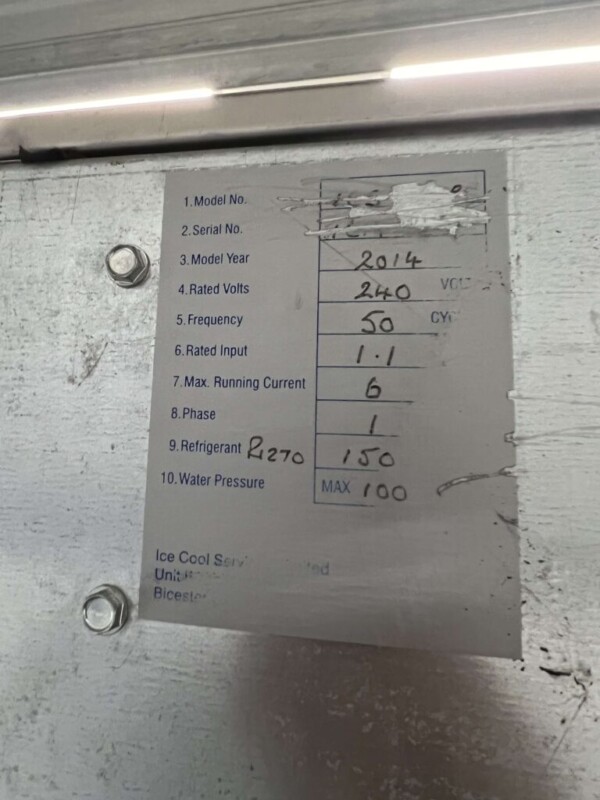 1.Model No.
2.Serial No.
3.Model Year 2014
4.Rated Volts 240
5.Frequency 50
6.Rated Input 1.1
7.Max. Running Current 6
8.Phase 1
9.Refrigerant R1270 150
10.Water Pressure MAX 100
Ice Cool